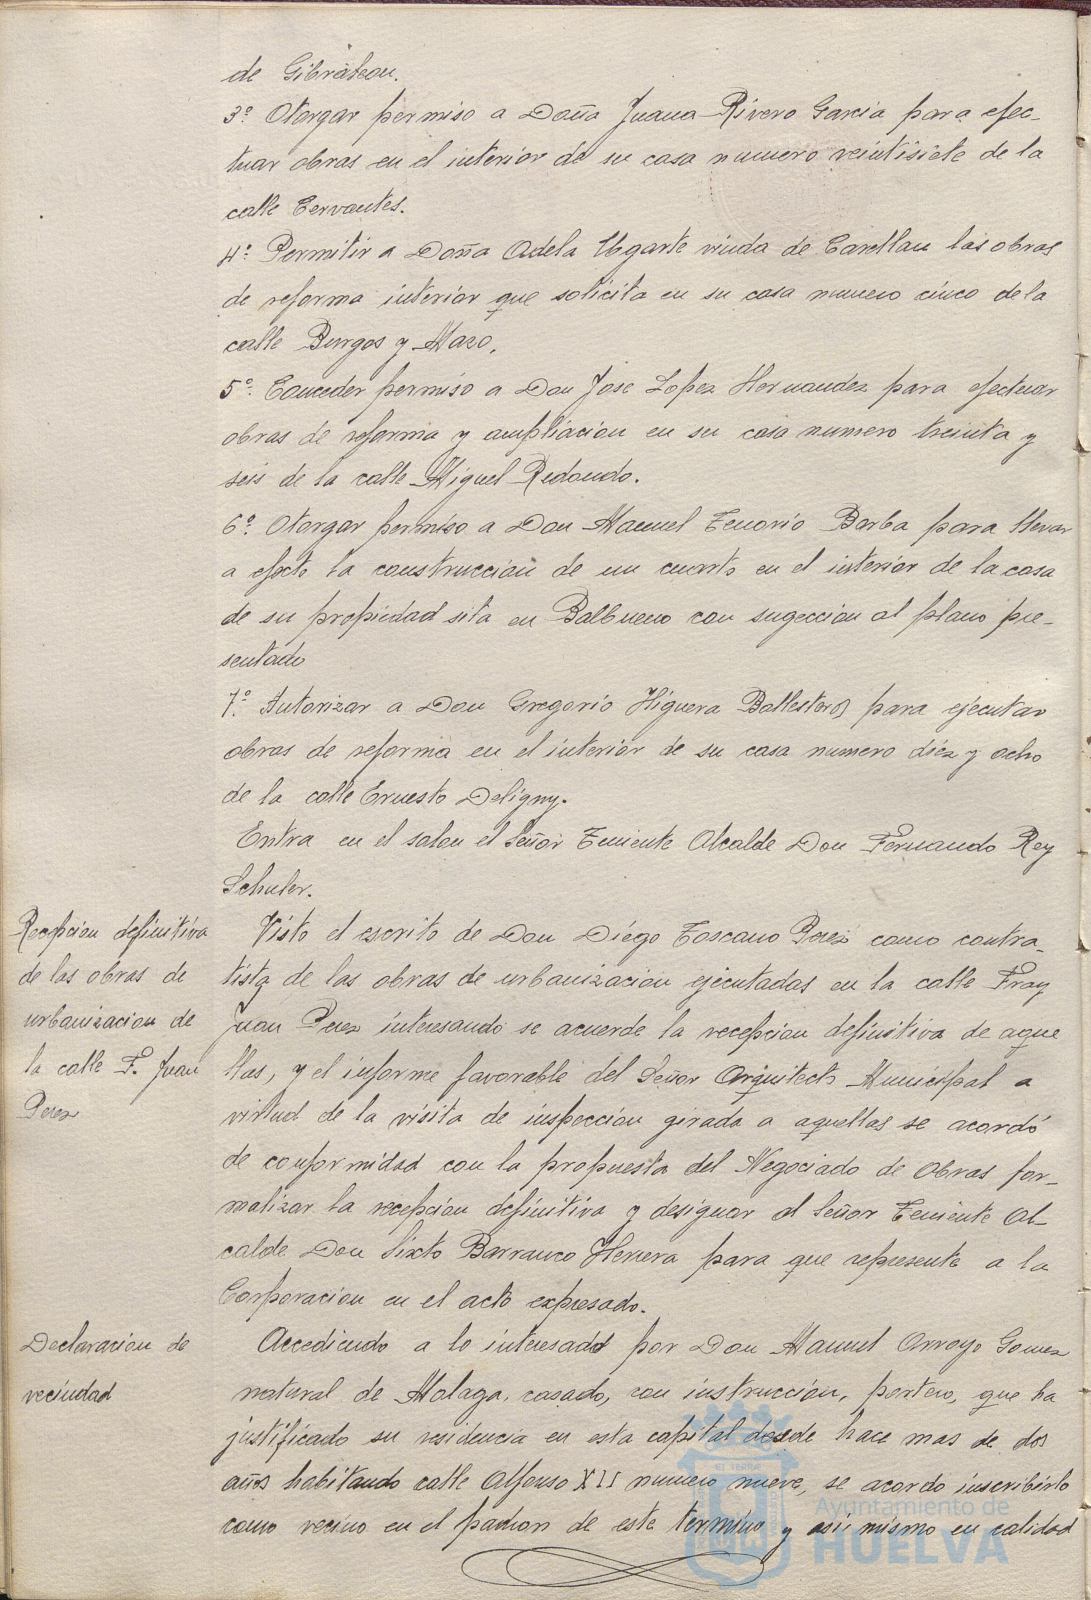 de Gibraleon.
3º Otorgar permiso a Doña Juana Rivero Garcia para efec-
tuar obras en el interior de su casa numero veintisiete de la
calle Cervantes.
4º Permitir a Doña Adela Ugarte viuda de las obras
de reforma interior que solicita en su casa numero cinco de la
calle Burgos y Mazo.
5º Conceder permiso a Don Jose Lopez Hernandez para efectuar
obras de reforma y ampliacion en su casa numero treinta y
seis de la calle Miguel Redondo.
6º Otorgar permiso a Don Manuel Tenorio Barba para llevar
a efecto la construccion de un cuarto en el interior de la casa
de su propiedad sita en Balbueno con sugeccion al plano pre-
sentado
7º Autorizar a Don Gregorio Higuera Ballesteros para ejecutar
obras de reforma en el interior de su casa numero diez y ocho
de la calle Ernesto Deligny.
Entra en el salon el Señor Teniente Alcalde Don Fernando Rey
Schuler.
Recepcion definitiva
de las obras de
urbanizacion de
la calle F. Juan
Perez
Visto el escrito de Don Diego Toscano Perez como contra-
tista de las obras de urbanizacion ejecutadas en la calle Fray
Juan Perez interesando se acuerde la recepcion definitiva de aque
llas, y el informe favorable del Señor Arquitecto Municipal a
virtud de la visita de inspeccion girada a aquellas se acordó
de conformidad con la propuesta del Negociado de Obras for-
malizar la recepcion definitiva y designar al Señor Teniente Al-
calde Don Sixto Barranco Herrera para que represente a la
Corporacion en el acto expresado.
Declaracion de
vecindad
Accediendo a lo interesado por Don Manuel Arroyo Gomez
natural de Malaga, casado, con instruccion, portero, que ha
justificado su residencia en esta capital desde hace mas de dos
años habitando calle Alfonso XII numero nueve, se acordo inscribirlo
como vecino en el padron de este termino y asi mismo en calidad
Ayuntamiento de
HUELVA